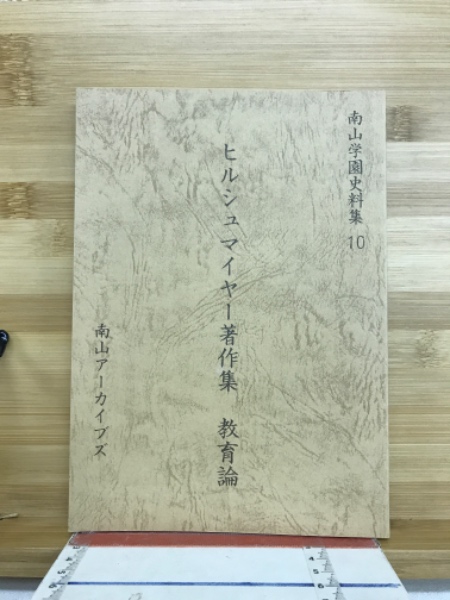 南山学園史料集 10
ヒルシュマイヤー著作集 教育論
南山アーカイブズ